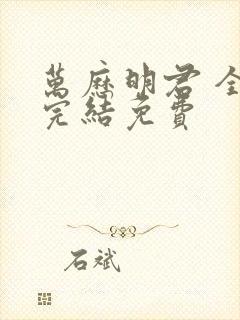 萬歷明君全
完結免費
石斌